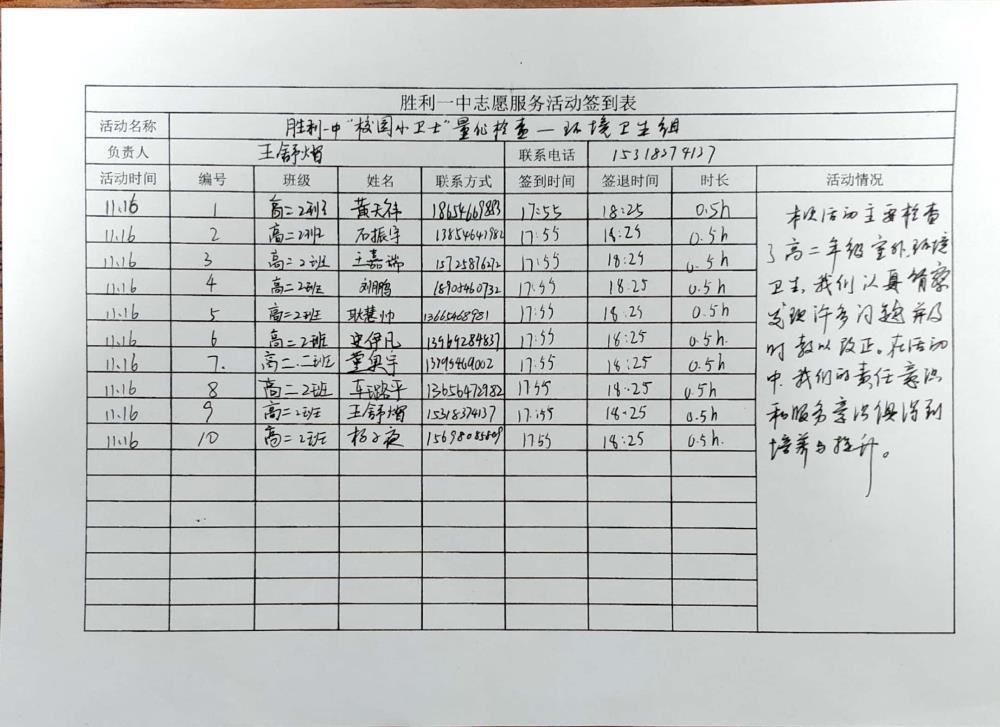 胜利一中志愿服务活动签到表
活动名称 胜利一中“校园小卫士”量化检查—环境卫生组
负责人 王舒熠 联系电话 15318374137
活动时间 编号 班级 姓名 联系方式 签到时间 签退时间 时长 活动情况
11.16 1 高二2班 黄天祎 17:55 18:25 0.5h
11.16 2 高二2班 石振宇 13854641982 17:55 18:25 0.5h
11.16 3 高二2班 王嘉瑞 15725876272 17:55 18:25 0.5h
11.16 4 高二2班 刘鹏 18905460732 17:55 18:25 0.5h
11.16 5 高二2班 耿慧帅 13665468981 17:55 18:25 0.5h
11.16 6 高二2班 安伊凡 13969284837 17:55 18:25 0.5h.
11.16 7. 高二.二班 董奥宇 13795469002 17:55 18:25 0.5h
11.16 8 高二2班 车璐平 13656472982 17:55 18:25 0.5h
11.16 9 高二2班 王舒熠 15318374137 17:55 18:25 0.5h
11.16 10 高二2班 杨子夜 15698085809 17:55 18:25 0.5h.
本次活动主要检查
了高二年级室外环境
卫生,我们认真督察
发现许多问题并及
时教以改正。在活动
中,我们的责任意识
和服务意识俱得到
培养与提升。